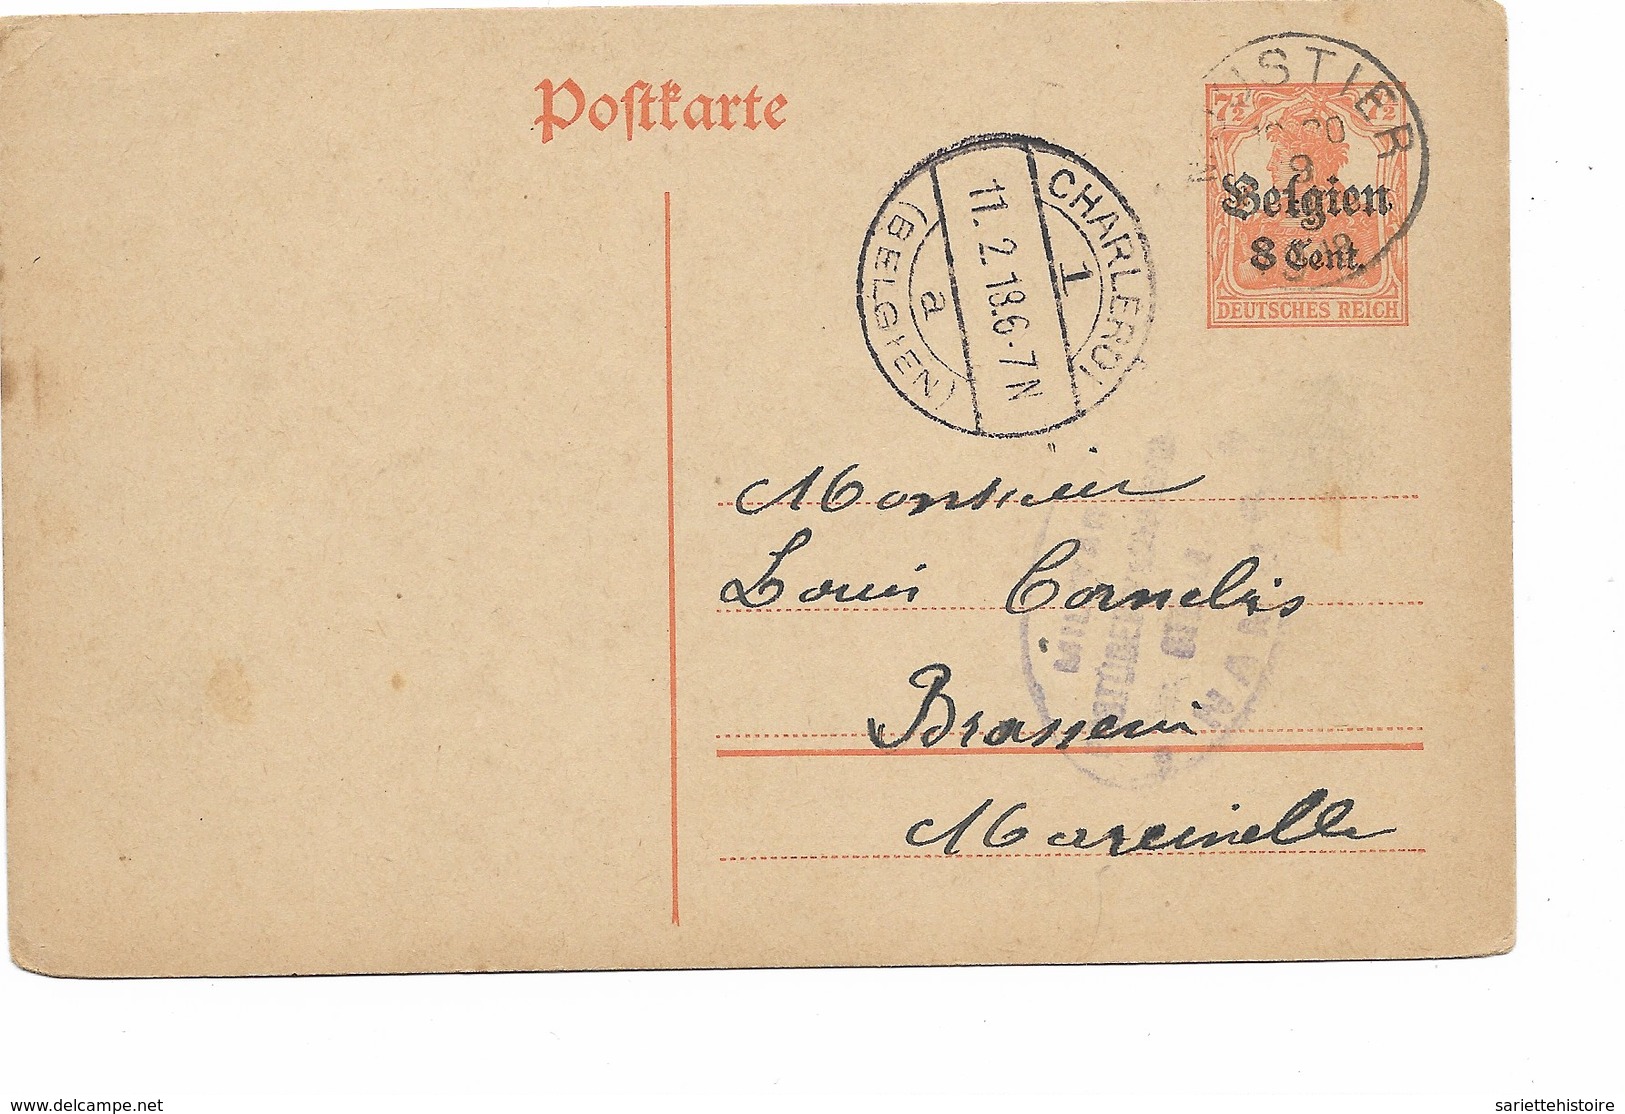 Postkarte
7½ 7½
Belgien
8 Cent.
DEUTSCHES REICH
CHARLEROI
1
11.2.18.6-7N
a
(BELGIEN)
Monsieur
Louis Cornelis
Brasserie
Marcinelle
www.delcampe.net
sariettehistoire